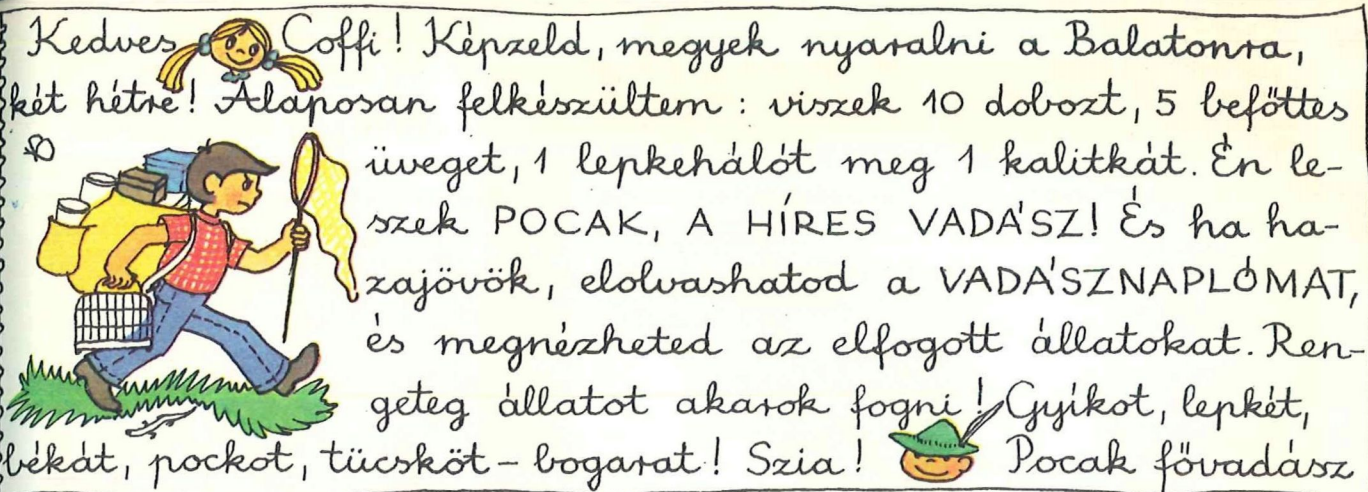 Kedves Coffi! Képzeld, megyek nyaralni a Balatonra,
két hétre! Alaposan felkészültem: viszek 10 dobozt, 5 befőttes
üveget, 1 lepkehálót meg 1 kalitkát. Én le-
szek POCAK, A HÍRES VADÁSZ! És ha ha-
zajövök, elolvashatod a VADÁSZNAPLÓMAT,
és megnézheted az elfogott állatokat. Ren-
geteg állatot akarok fogni! Gyíkot, lepkét,
békát, pockot, tücsköt-bogarat! Szia! Pocak fővadász